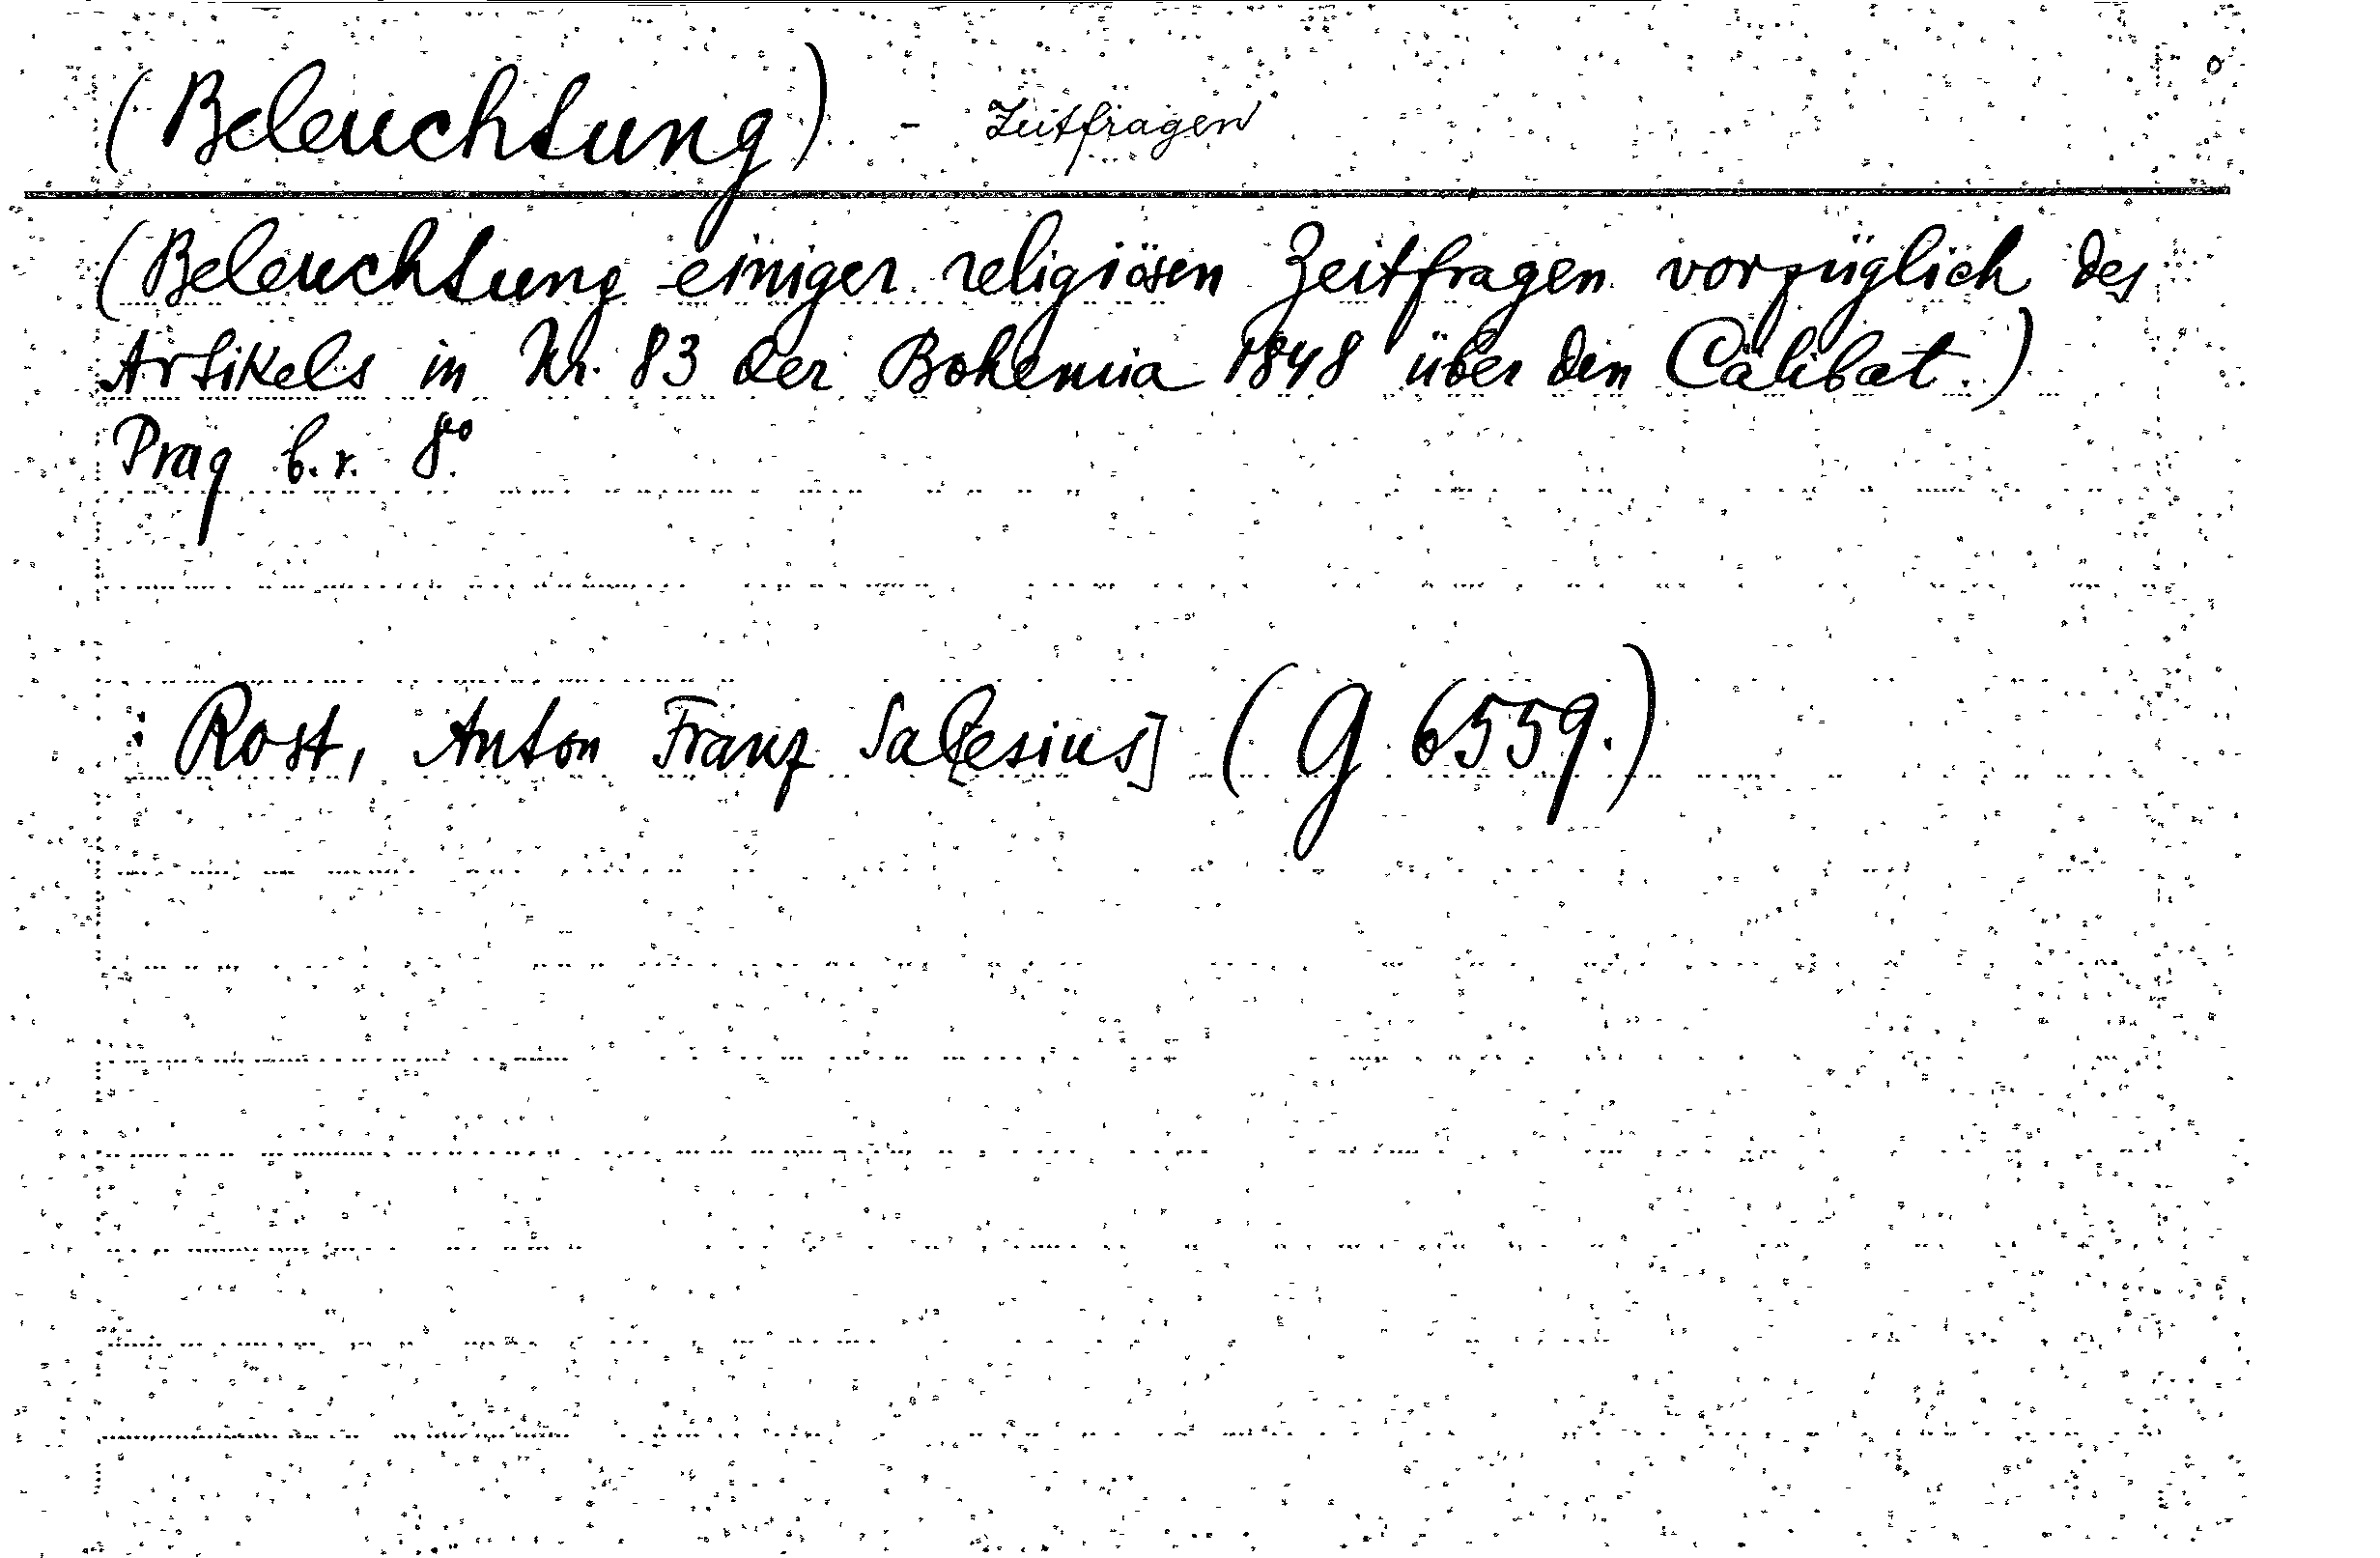 (Beleuchtung) - Zeitfragen
(Beleuchtung einiger religiösen Zeitfragen vorzüglich des
Artikels in Nr. 83 der Bohemia 1848 über den Cälibat.)
Prag b. r. 8°
: Rost, Anton Franz Sal[esius] (G 6559.)